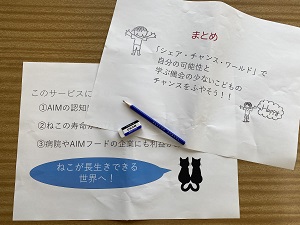 まとめ
「シェア・チャンス・ワールド」で
自分の可能性と
学ぶ機会の少ないこどもの
チャンスをふやそう！！
このサービスに
①AIMの認知
②ねこの寿命が
③病院やAIMフードの企業にも利益
ねこが長生きできる
世界へ！